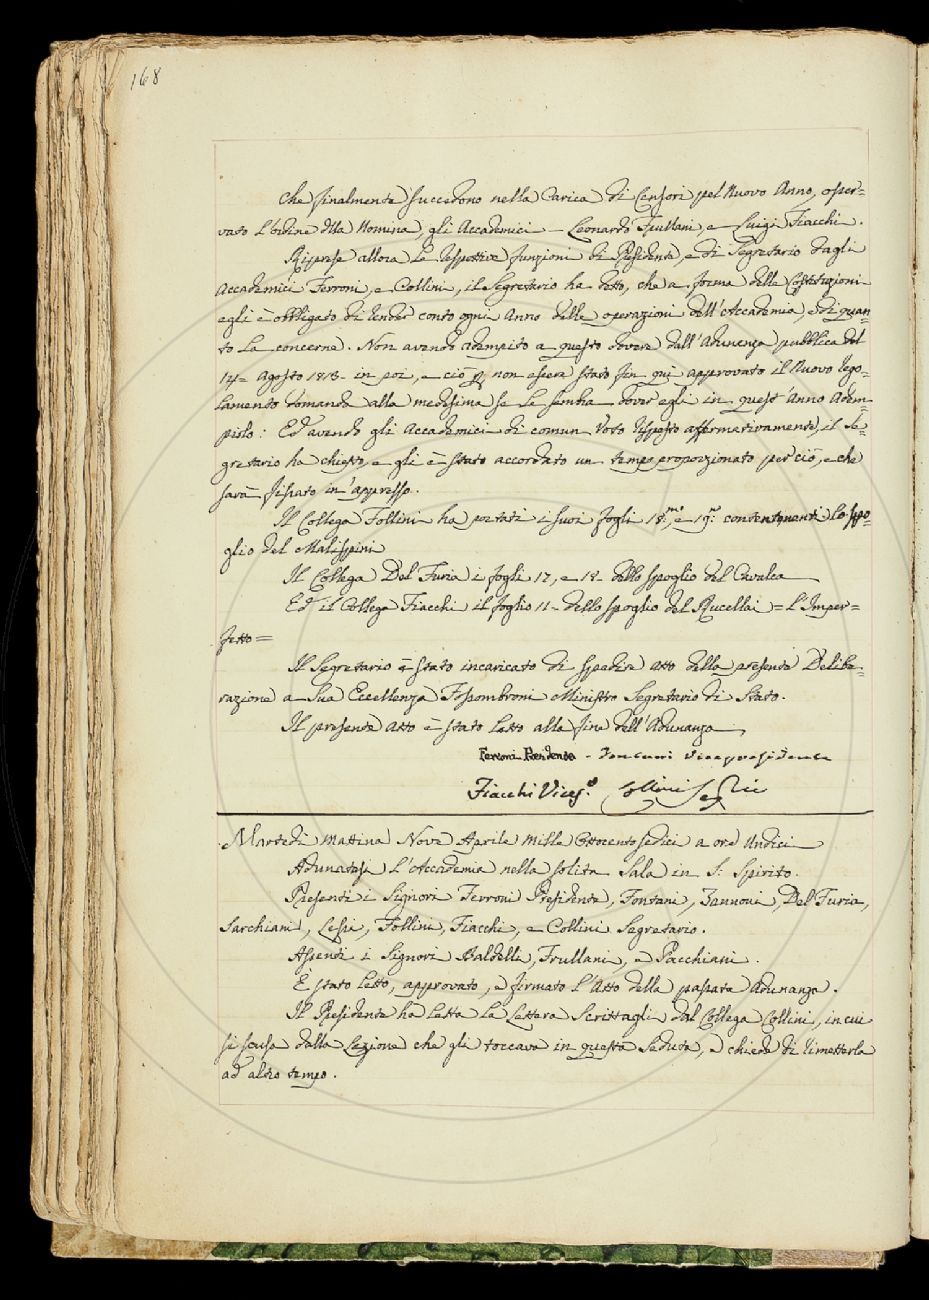 168
Che finalmente succedono nella Carica di Censori pel Nuovo Anno, osser=
vato l'ordine della Nomina, gli Accademici — Leonardo Frullani, e Luigi Fiacchi.
Riprese allora le respettive funzioni di Presidente, e di Segretario dagli
Accademici Ferroni, e Collini, il Segretario ha detto, che a forma delle Costituzioni
egli è obbligato di render conto ogni Anno delle operazioni dell'Accademia, e di quan=
to la concerne. Non avendo adempito a questo dovere dall'Adunanza pubblica del
14= Agosto 1813= in poi, e ciò p. non essere stato fin qui approvato il Nuovo rego=
lamento domanda alla medesima se le sembra dover egli in quest'Anno Adem=
pirlo: Ed avendo gli Accademici di comun Voto risposto affermativamente, il Se=
gretario ha chiesto, e gli è stato accordato un tempo proporzionato per ciò, e che
sarà fissato in appresso.
Il Collega Follini ha portati i suoi fogli 18.mo, e 19.mo contenenti lo spo=
glio del Malispini
Il Collega Del Furia i fogli 17, e 18= dello spoglio del Cavalca
Ed il Collega Fiacchi il foglio 11= dello spoglio del Rucellai = l'Imper=
fetto =
Il Segretario è stato incaricato di spedire atto della presente Delibe=
razione a Sua Eccellenza Fossombroni Ministro Segretario di Stato.
Il presente Atto è stato Letto alla fine dell'Adunanza
Ferroni Presidente - Fontani Vicepresidente
Fiacchi Viceseg.o Collini Seg.rio
Martedì mattina Nove Aprile Mille Ottocento sedici a ore Undici
Adunatasi l'Accademia nella solita Sala in S. Spirito.
Presenti i Signori Ferroni Presidente, Fontani, Zannoni, Del Furia,
Sarchiani, Lessi, Follini, Fiacchi, e Collini Segretario.
Assenti i Signori Baldelli, Frullani, e Pacchiani.
È stato letto, approvato, e firmato l'Atto della passata Adunanza.
Il Presidente ha letta la Lettera Scrittagli dal Collega Collini, in cui
si scusa dalla Lezione che gli toccava in questa Seduta, e chiede di rimetterla
ad altro tempo.